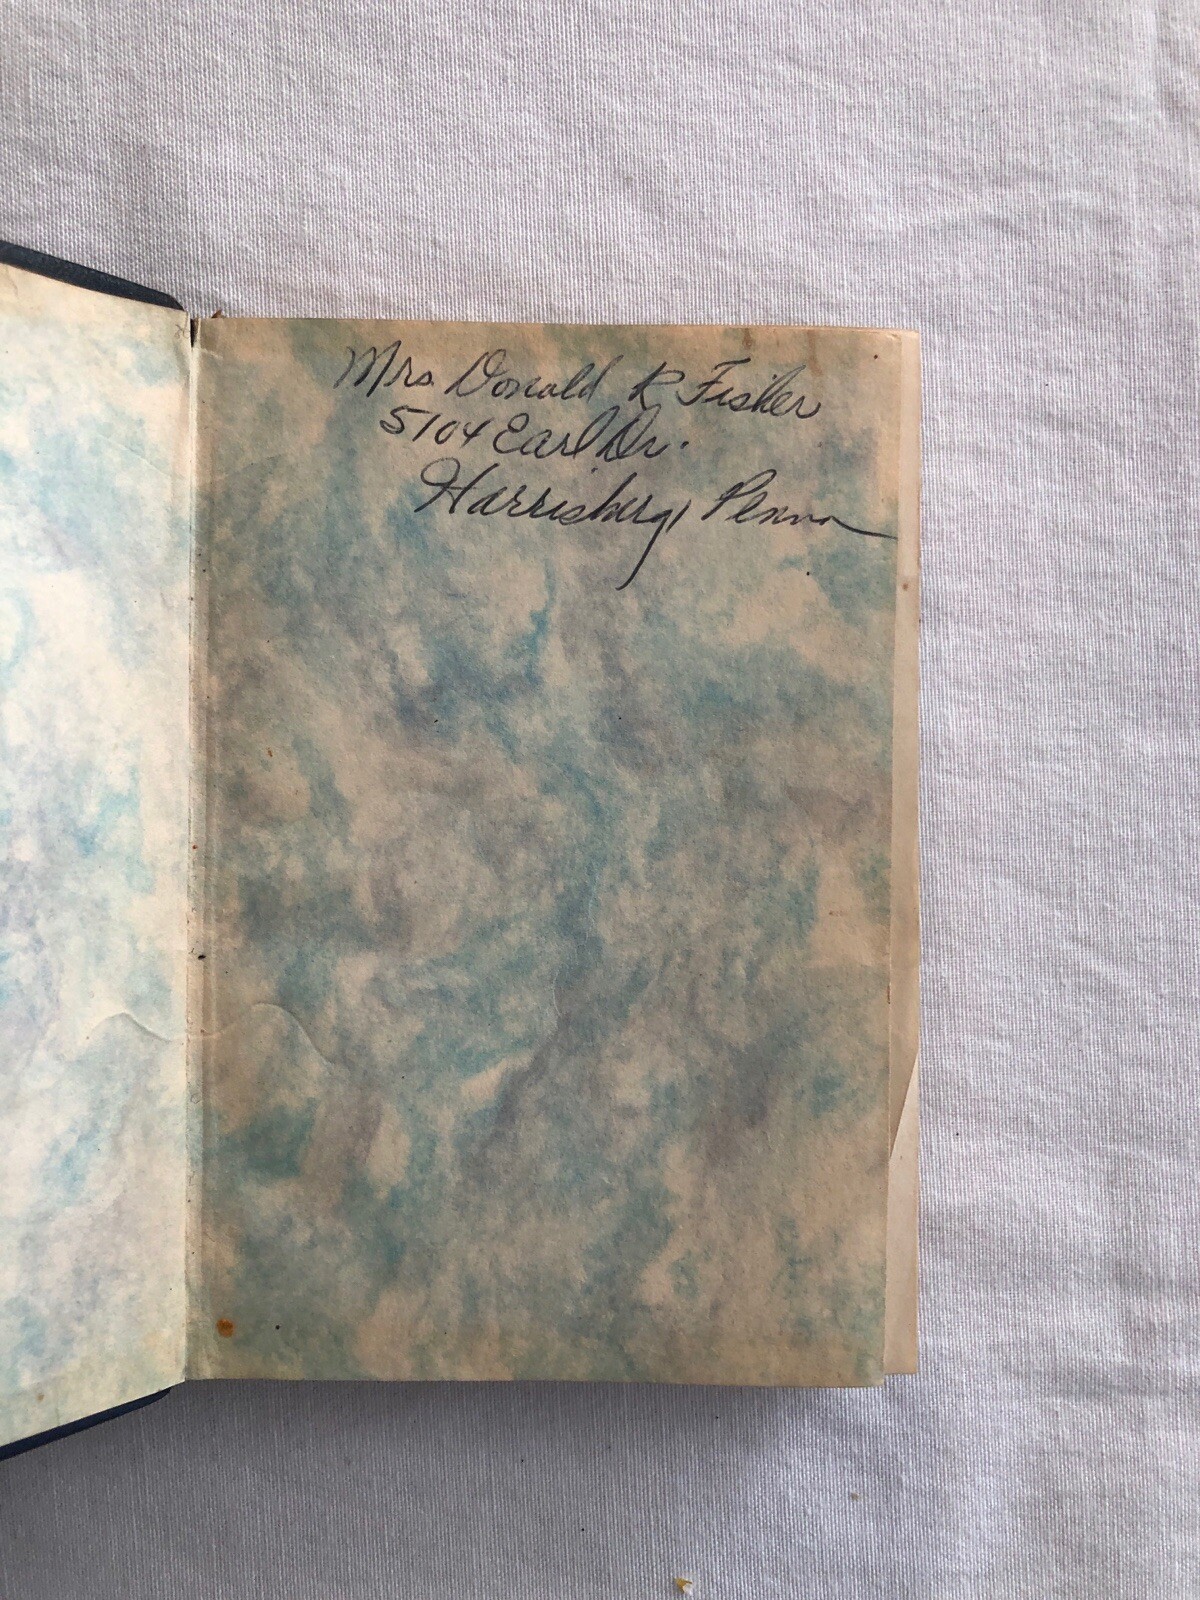 Mrs. Donald R Fisher
5104 Earl Dr.
Harrisburg, Penna